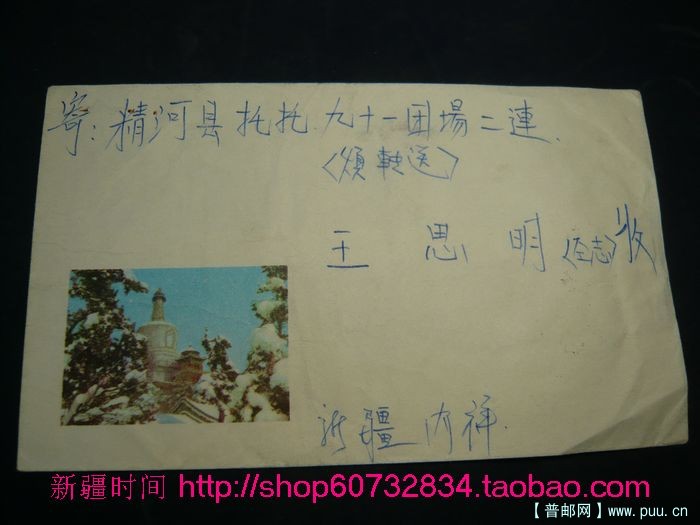 寄：精河县托托九十一团場二連.
〈煩転送〉
王思明〈同志〉收
新疆内祥.
新疆时间 http://shop60732834.taobao.com
【普邮网】www.puu.cn